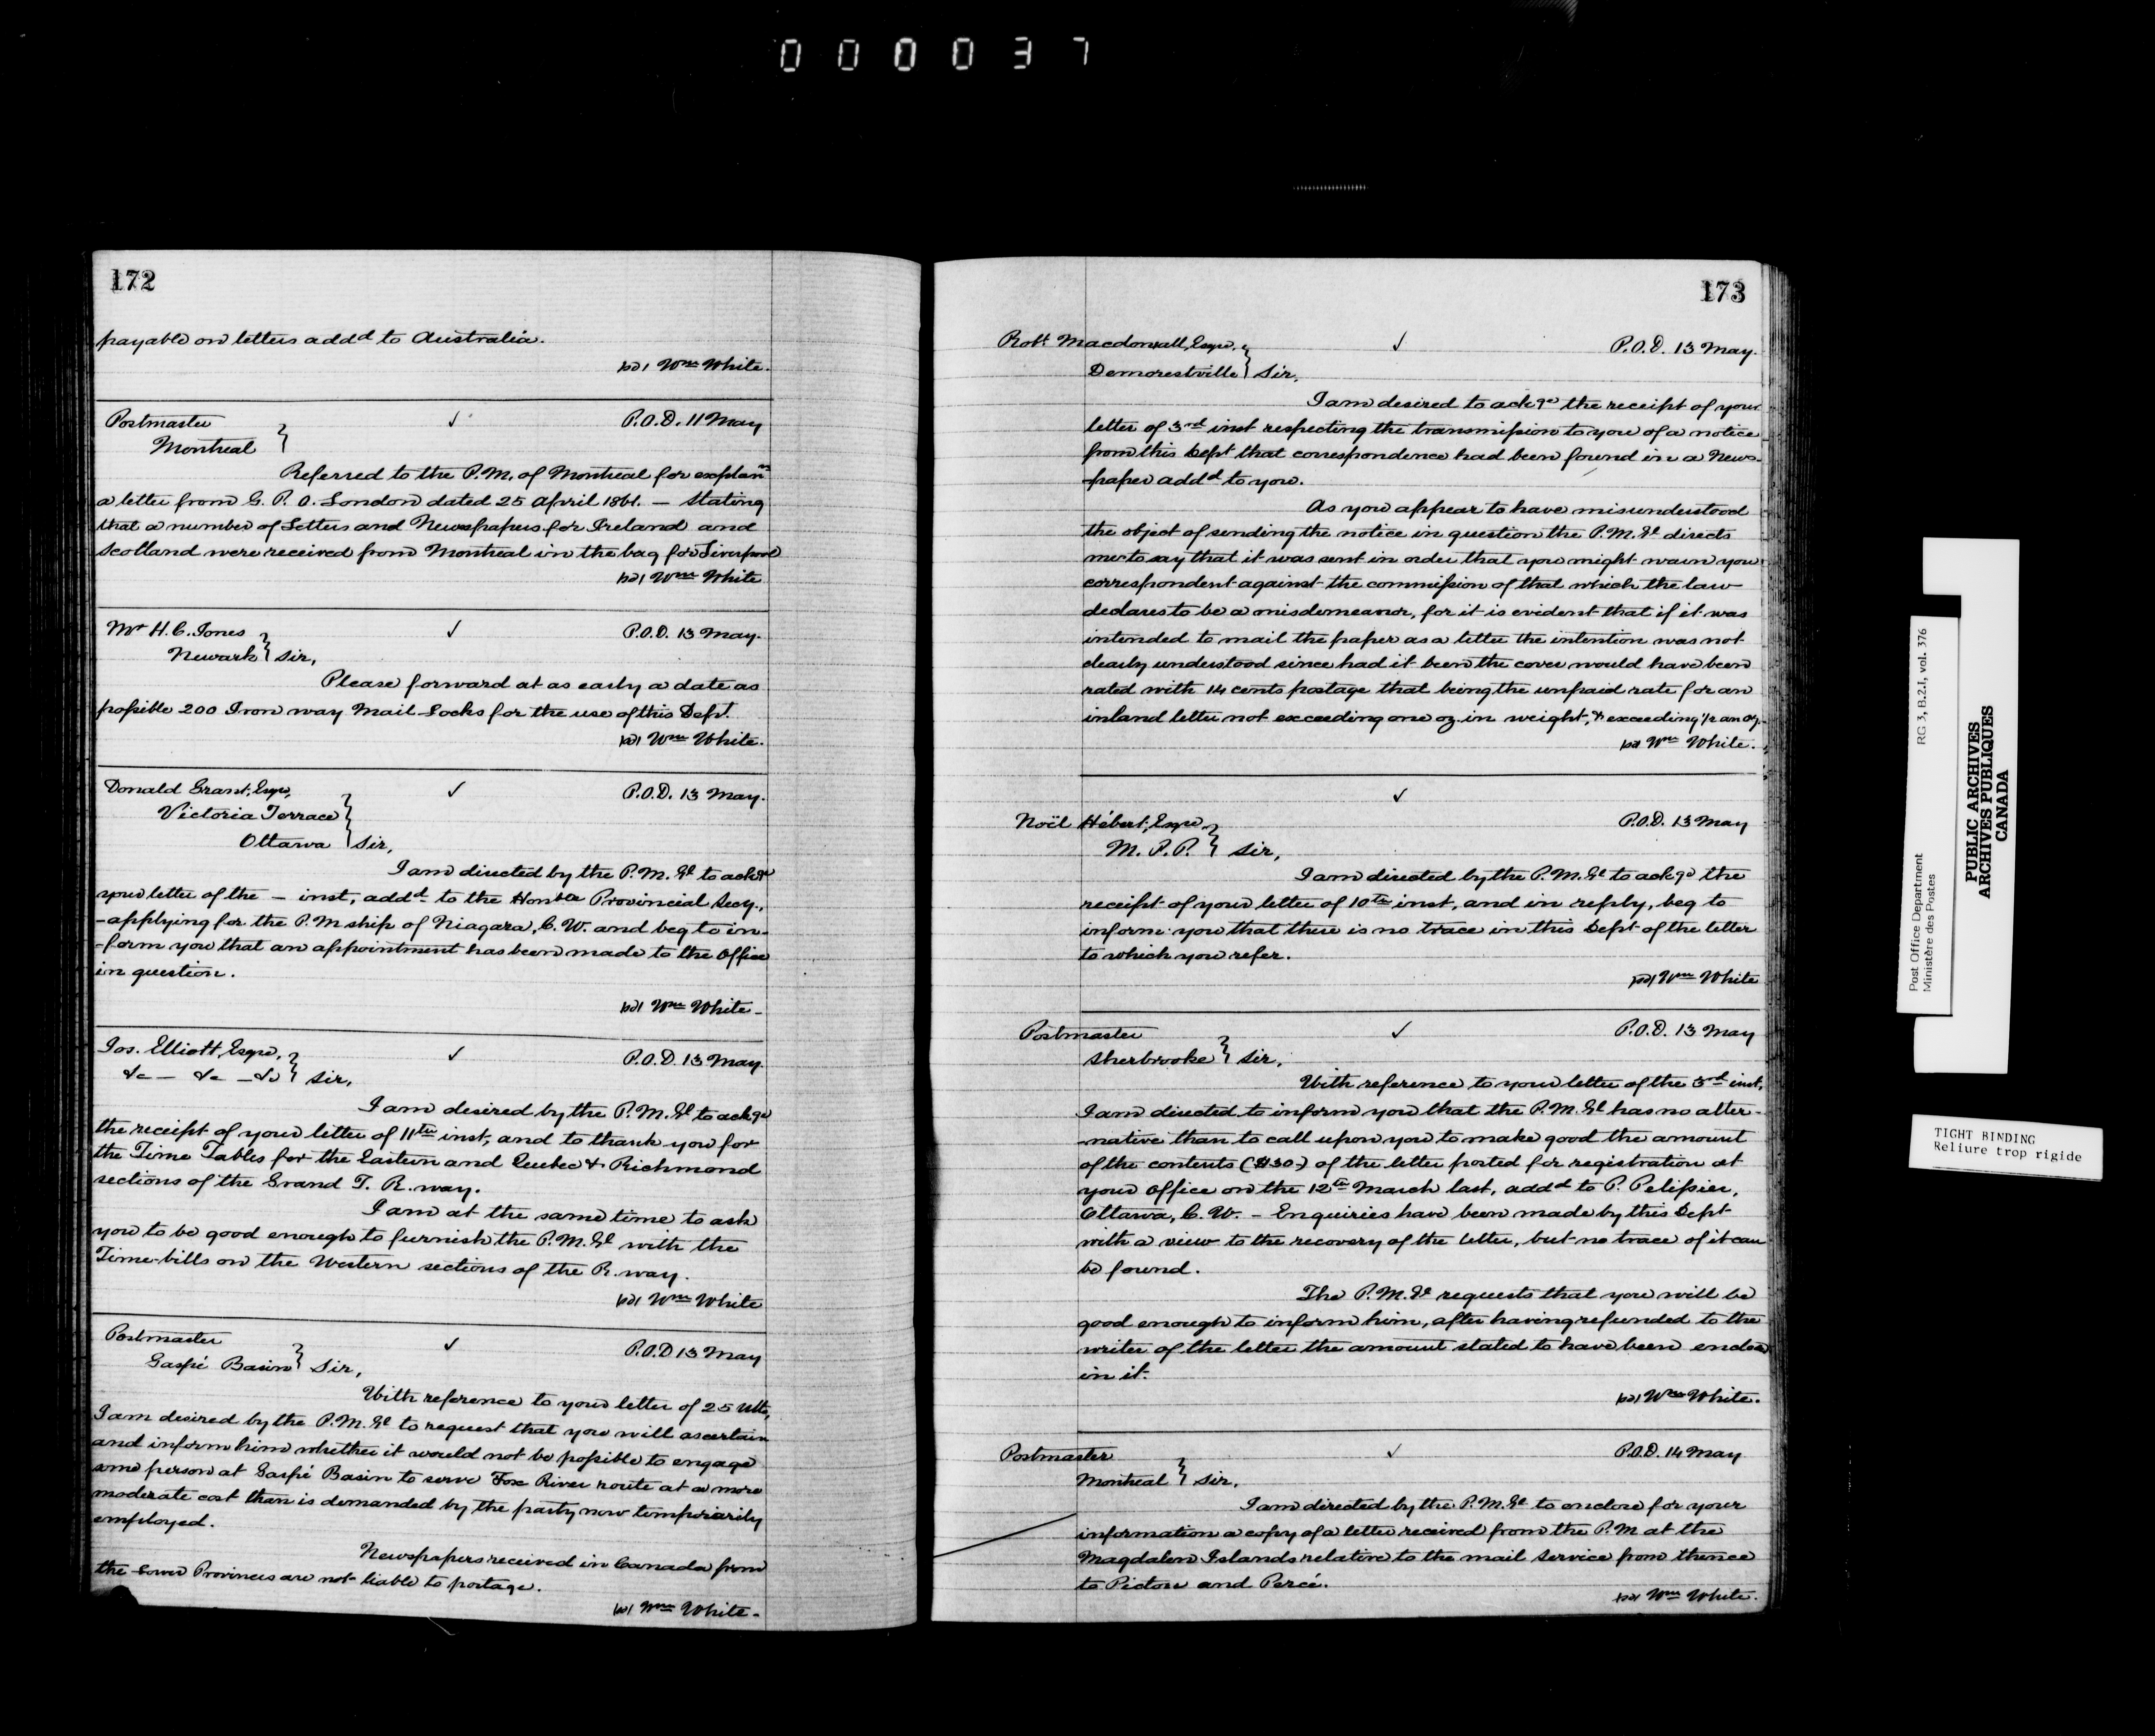 000037
172
payable on letters addd to Australia.
Wm White.
Postmaster ✓ P.O.D. 11 May
Montreal }
Referred to the P.M. of Montreal for explann
a letter from G. P. O. London dated 25 April 1861. — stating
that a number of Letters and Newspapers for Ireland and
Scotland were received from Montreal in the bag for Liverpool
Wm White
Mr H. C. Jones ✓ P.O.D. 13 May.
Newark } Sir,
Please forward at as early a date as
possible 200 Iron way Mail Locks for the use of this Dept.
Wm White.
Donald Grant, Esqre, ✓ P.O.D. 13 May.
Victoria Terrace
Ottawa } Sir,
I am directed by the P.M. Gl to ackge
your letter of the — inst, addd to the Honble Provincial Secy.,
-applying for the P.M ship of Niagara, C.W. and beg to in-
-form you that an appointment has been made to the Office
in question.
Wm White -
Jos. Elliott, Esqre, ✓ P.O.D. 13 May.
&c — &c — &c } Sir,
I am desired by the P.M. Gl to ackge
the receipt of your letter of 11th inst, and to thank you for
the Time Tables for the Eastern and Quebec & Richmond
sections of the Grand T. R. way.
I am at the same time to ask
you to be good enough to furnish the P.M. Gl with the
Time-bills on the Western sections of the R. way.
Wm White
Postmaster ✓ P.O.D 13 May
Gaspé Basin } Sir,
With reference to your letter of 25 Ulto,
I am desired by the P.M. Gl to request that you will ascertain
and inform him whether it would not be possible to engage
some person at Gaspé Basin to serve Fox River route at a more
moderate cost than is demanded by the party now temporarily
employed.
Newspapers received in Canada from
the Lower Provinces are not liable to postage.
Wm White -
173
Robt Macdonall, Esqre, ✓ P.O.D. 13 May.
Demorestville } Sir,
I am desired to ackge the receipt of your
letter of 3rd inst respecting the transmission to you of a notice
from this Dept that correspondence had been found in a News-
-paper addd to you.
As you appear to have misunderstood
the object of sending the notice in question the P.M. Gl directs
me to say that it was sent in order that you might warn your
correspondent against the commission of that which the law
declares to be a misdemeanor, for it is evident that if it was
intended to mail the paper as a letter the intention was not
clearly understood since had it been the cover would have been
rated with 14 cents postage that being the unpaid rate for an
inland letter not exceeding one oz. in weight, & exceeding 1/2 an oz.
Wm White.
✓
Noël Hébert, Esqre P.O.D. 13 May
M. P. P. } Sir,
I am directed by the P.M. Gl to ackge the
receipt of your letter of 10th inst, and in reply, beg to
inform you that there is no trace in this Dept of the letter
to which you refer.
Wm White
Postmaster ✓ P.O.D. 13 May
Sherbrooke } Sir,
With reference to your letter of the 3rd inst,
I am directed to inform you that the P.M. Gl has no alter-
-native than to call upon you to make good the amount
of the contents ($30-) of the letter posted for registration at
your Office on the 12th March last, addd to P. Pelissier,
Ottawa, C.W. - Enquiries have been made by this Dept
with a view to the recovery of the letter, but no trace of it can
be found.
The P.M. Gl requests that you will be
good enough to inform him, after having refunded to the
writer of the letter the amount stated to have been enclosed
in it.
Wm White.
Postmaster ✓ P.O.D. 14 May
Montreal } Sir,
I am directed by the P.M. Gl to enclose for your
information a copy of a letter received from the P.M at the
Magdalen Islands relative to the mail service from thence
to Pictou and Percé.
Wm White.
Post Office Department RG 3, B.2.I, vol. 376
Ministère des Postes
PUBLIC ARCHIVES
ARCHIVES PUBLIQUES
CANADA
TIGHT BINDING
Reliure trop rigide